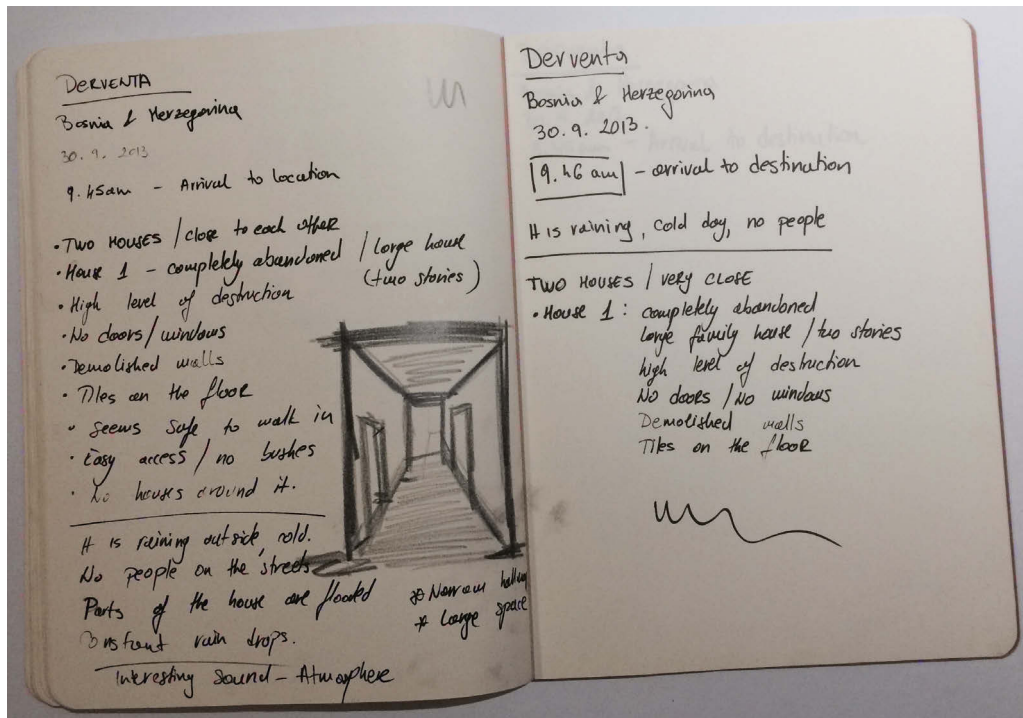 DERVENTA
Bosnia & Herzegovina
30. 9. 2013
9.45am - Arrival to location
• TWO HOUSES / close to each other
• House 1 - completely abandoned / Large house
(two stories)
• High level of destruction
• No doors / windows
• Demolished walls
• Tiles on the floor
• Seems safe to walk in
• Easy access / no bushes
• No houses around it.
It is raining outside, cold.
No people on the streets
Parts of the house are flooded
Constant rain drops.
Interesting sound - Atmosphere
* Narrow hallway
* Large space
Derventa
Bosnia & Herzegovina
30. 9. 2013.
9.46 am - arrival to destination
It is raining, cold day, no people
TWO HOUSES / very CLOSE
• House 1: completely abandoned
Large family house / two stories
high level of destruction
No doors / No windows
Demolished walls
Tiles on the floor